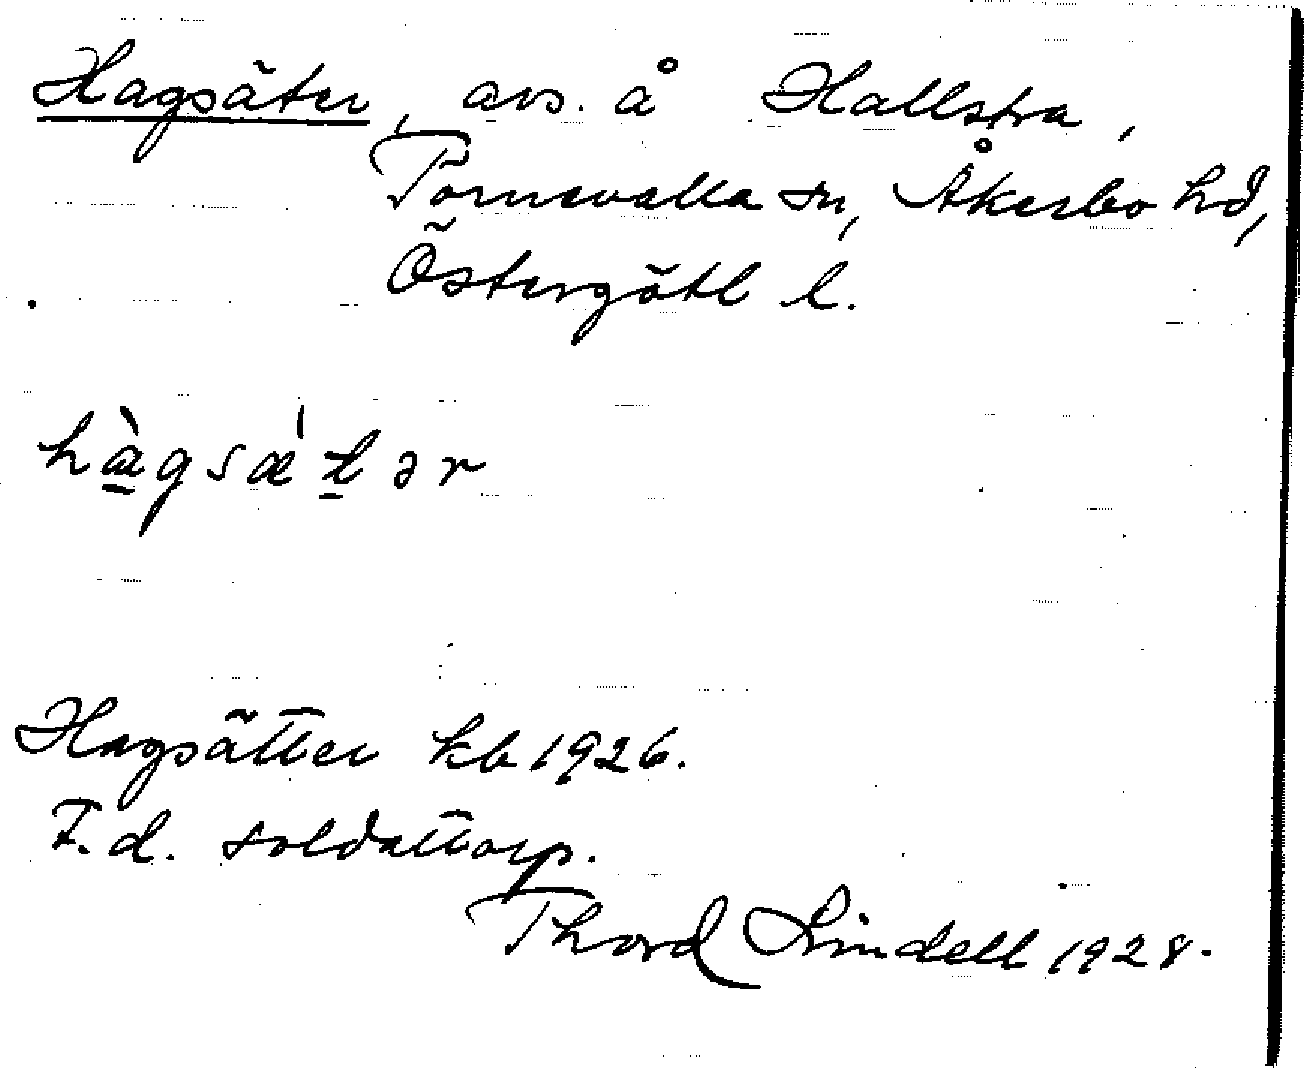 Hagsäter, avs. å Hallstra,
Törnevalla sn, Åkerbo hd,
Östergötl l.
hàgsæ̍tər
Hagsätter kb 1926.
F.d. soldattorp.
Thord Lindell 1928.